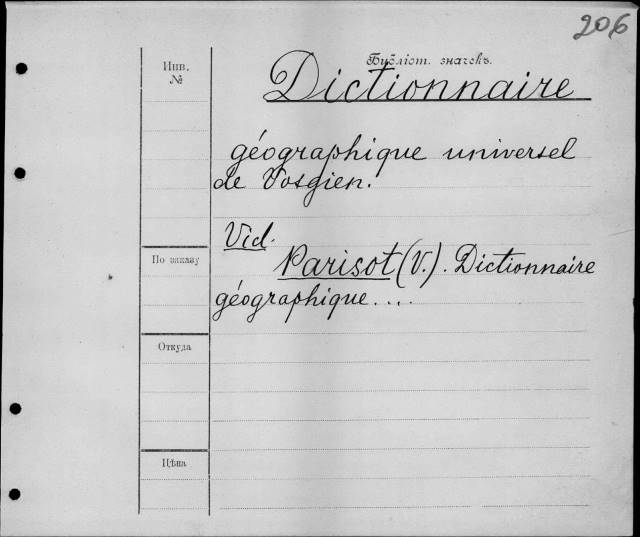 206
Инв.
№
Библіот. значекъ.
Dictionnaire
géographique universel
de Vosgien.
Vid.
Parisot (V.). Dictionnaire
géographique....
По заказу
Откуда
Цѣна